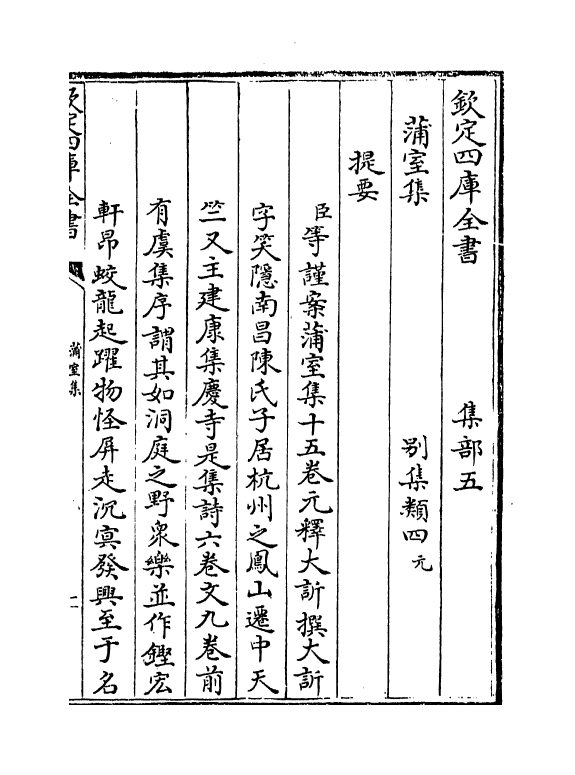 欽定四庫全書 集部五
蒲室集 别集類四元
提要
臣等謹案蒲室集十五卷元釋大訢撰大訢
字笑隱南昌陳氏子居杭州之鳳山遷中天
竺又主建康集慶寺是集詩六卷文九卷前
有虞集序謂其如洞庭之野衆樂並作鏗宏
軒昂蛟龍起躍物怪屏走沉㝠發興至于名
欽定四庫全書
蒲室集
一